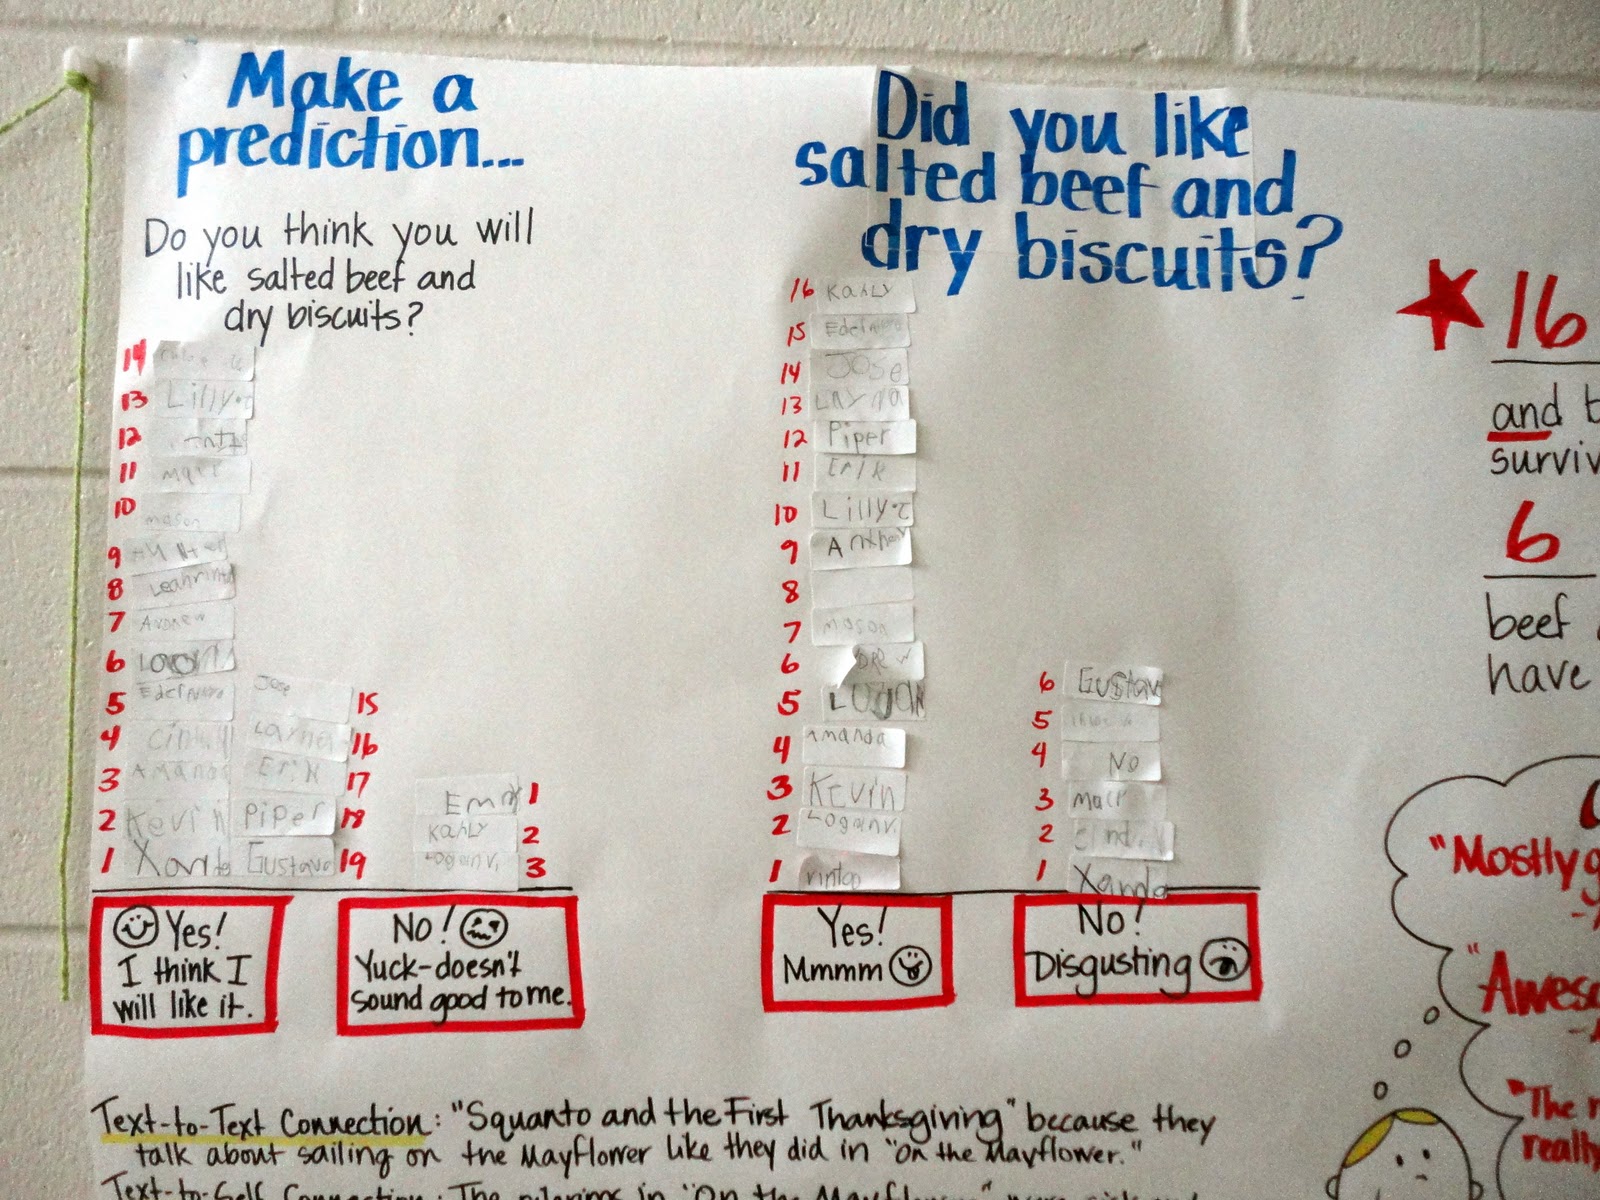 Make a
prediction...
Do you think you will
like salted beef and
dry biscuits?
14
13 Lilly.T
12
11 Matt
10 mason
9 Hunter
8
7 Andrew
6
5 Edelmira Jose 15
4 Layna 16
3 Amanda Erik 17
2 Kevin Piper 18
1 Xand Gustavo 19
Em 1
KaHLy 2
Loganv. 3
Yes!
I think I
will like it.
No!
Yuck-doesn't
sound good to me.
Did you like
salted beef and
dry biscuits?
16 KaHLy
15
14 Jose
13 Layna
12 Piper
11 Erik
10 Lilly.T
9 Anthony
8
7 mason
6
5 LOgaN
4 Amanda
3 Kevin
2 Loganv.
1
6 Gustav
5
4 No
3 Matt
2
1 Xand
Yes!
Mmmm
No!
Disgusting
16
and
surviv
6
beef
have
"Mostly g
"Aweso
"The r
really
Text-to-Text Connection: "Squanto and the First Thanksgiving" because they
talk about sailing on the Mayflower like they did in "On the Mayflower."
Text-to-Self Connection: The pilgrims in "On the Mayflower" were sick and